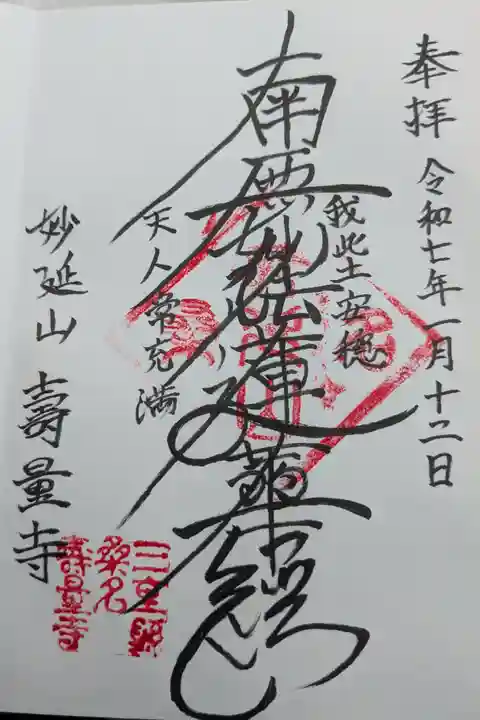 奉拝 令和七年一月十二日
我此土安穏
南無妙法蓮華経
天人常充満
妙延山 壽量寺
三重縣
桑名
壽量寺